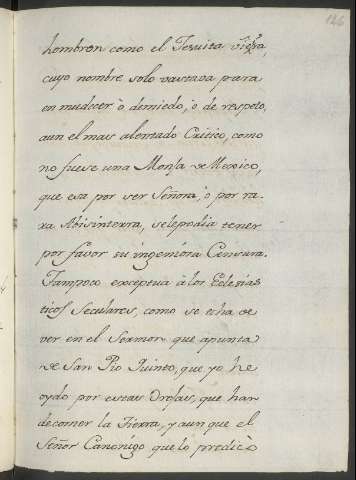 126
hombren como el Jesuita Vieÿra,
cuyo nombre solo vastava para
enmudecer ò demiedo, ò de respeto,
aun el mas alentado Critico, como
no fuese una Monja de Mexico,
que esa por ser Señora, ò por ra-
ra Abisinterra, selepodia tener
por favor su ingeniosa Censura.
Tampoco exceptua à los Eclesias
ticos Seculares, como se echa de
ver en el Sermon que apunta
de San Pio Quinto, que yo he
oydo por estas Orejas, que han
decomer la Tierra, y aun que el
Señor Canonigo que lo predicò